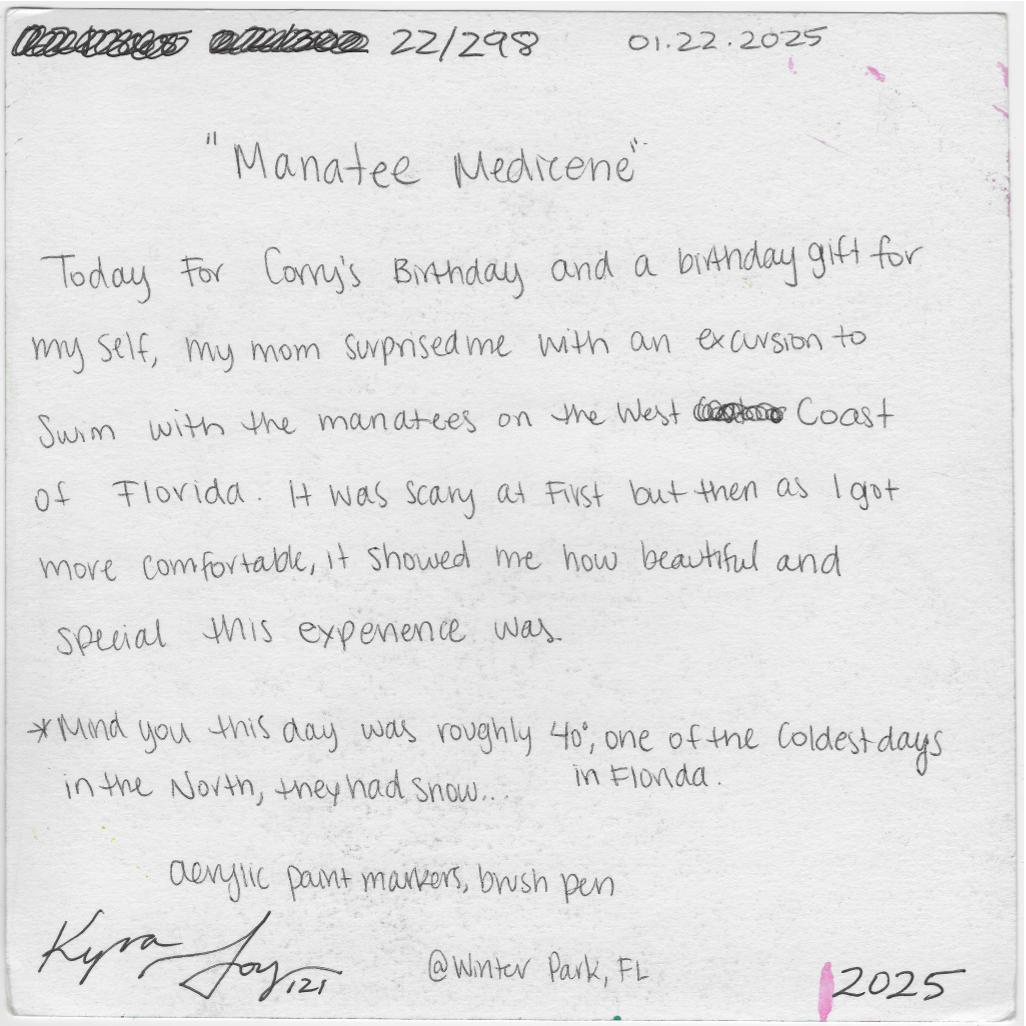 22/298 01.22.2025
"Manatee Medicene"
Today For Corry's Birthday and a birthday gift for
my self, my mom surprised me with an excursion to
Swim with the manatees on the West Coast
of Florida. It was scary at First but then as I got
more comfortable, it showed me how beautiful and
special this experience was.
*Mind you this day was roughly 40°, one of the Coldest days
in Florida.
in the North, they had snow...
acrylic paint markers, brush pen
Kyra Joy 121
@Winter Park, FL
2025